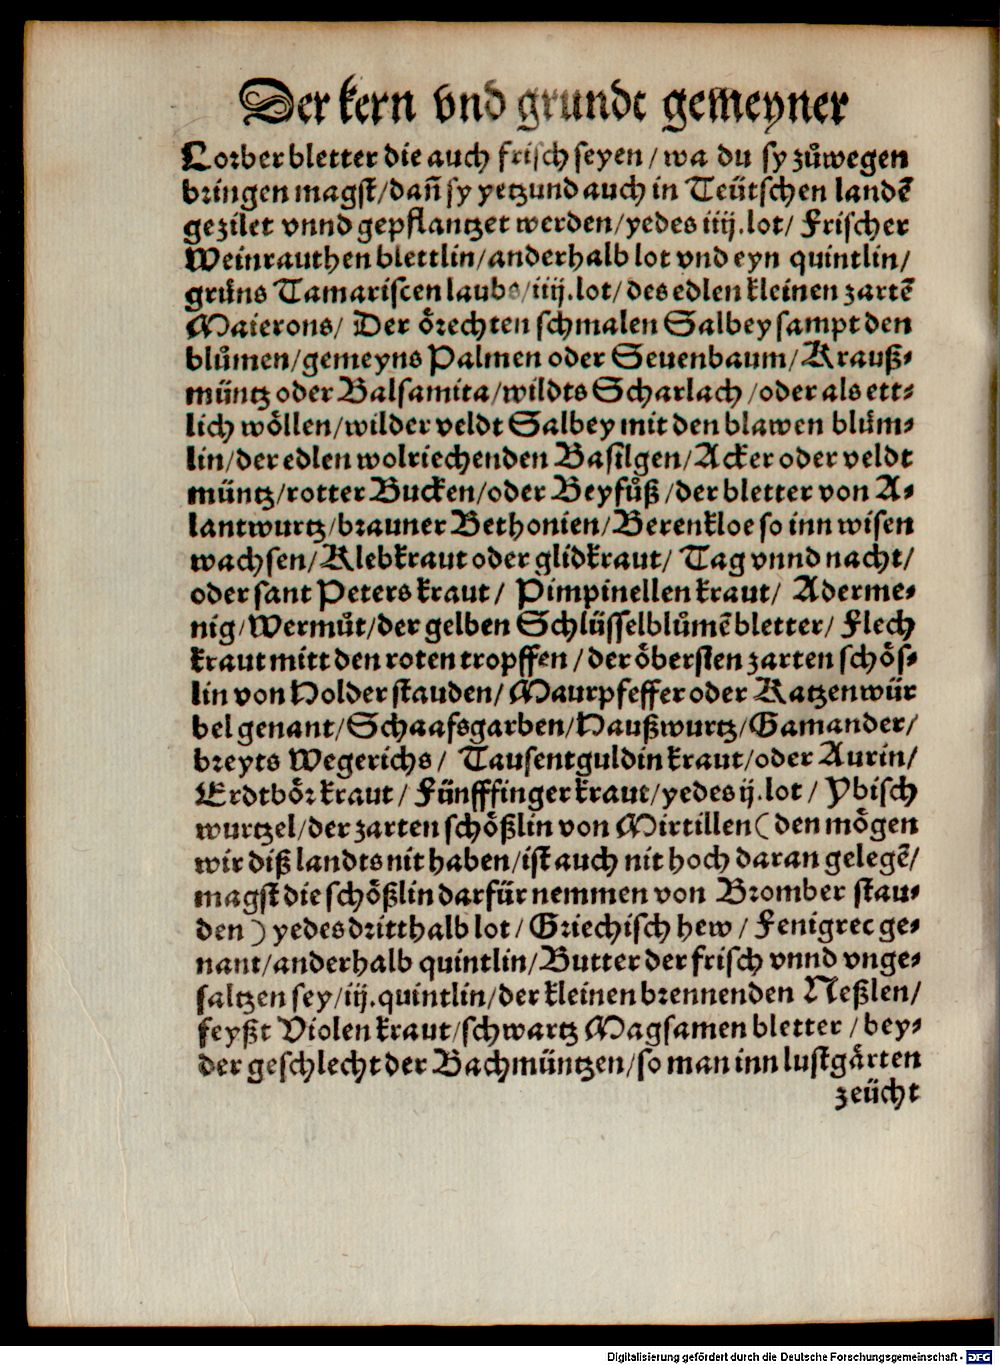 Der kern vnd grundt gemeyner
Lorber bletter die auch frisch seyen / wa du sy zůwegen
bringen magst / dañ sy yetzund auch in Teütschen landẽ
gezilet vnnd gepflantzet werden / yedes iiij.lot / Frischer
Weinrauthen blettlin / anderhalb lot vnd eyn quintlin /
grůns Tamariscen laubs / iiij.lot / des edlen kleinen zartẽ
Maierons / Der ŏrechten schmalen Salbey sampt den
blůmen / gemeyns Palmen oder Seuenbaum / Krauß⸗
müntz oder Balsamita / wildts Scharlach / oder als ett⸗
lich wöllen / wilder veldt Salbey mit den blawen blům⸗
lin / der edlen wolriechenden Basilgen / Acker oder veldt
müntz / rotter Bucken / oder Beyfůß / der bletter von A⸗
lantwurtz / brauner Bethonien / Berenkloe so inn wisen
wachsen / Klebkraut oder glidkraut / Tag vnnd nacht /
oder sant Peters kraut / Pimpinellen kraut / Aderme⸗
nig / Wermůt / der gelben Schlüsselblůmẽ bletter / Flech
kraut mitt den roten tropffen / der öbersten zarten schös⸗
lin von Holder stauden / Maurpfeffer oder Katzenwür
bel genant / Schaafsgarben / Haußwurtz / Gamander /
breyts Wegerichs / Tausentguldin kraut / oder Aurin /
Erdtbör kraut / Fünfffinger kraut / yedes ij.lot / Ybisch
wurtzel / der zarten schößlin von Mirtillen ( den mögen
wir diß landts nit haben / ist auch nit hoch daran gelegẽ /
magst die schößlin darfür nemmen von Bromber stau⸗
den ) yedes dritthalb lot / Griechisch hew / Fenigrec ge⸗
nant / anderhalb quintlin / Butter der frisch vnnd vnge⸗
saltzen sey / iij.quintlin / der kleinen brennenden Neßlen /
feyßt Violen kraut / schwartz Magsamen bletter / bey⸗
der geschlecht der Bachmüntzen / so man inn lustgärten
zeücht
Digitalisierung gefördert durch die Deutsche Forschungsgemeinschaft - DFG